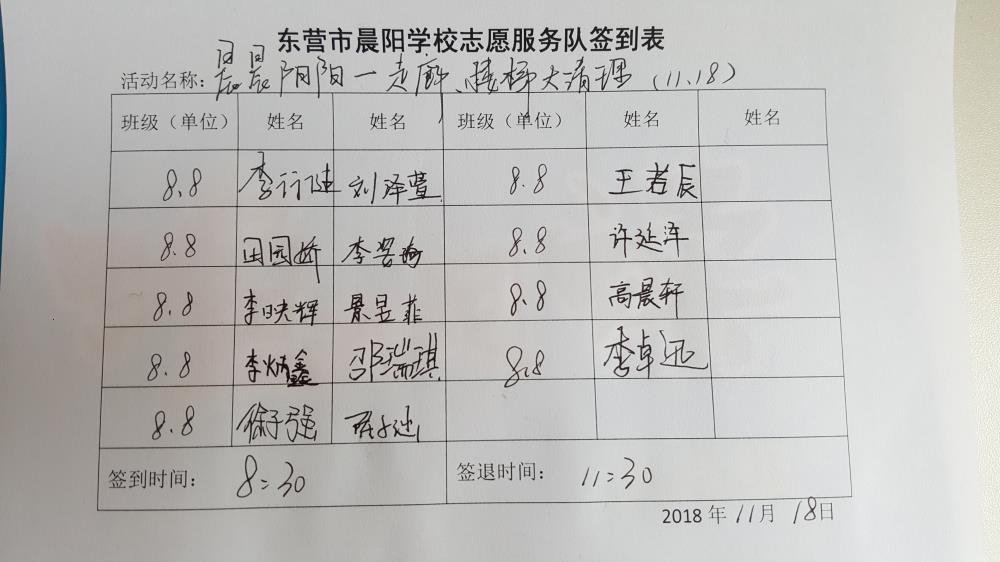 东营市晨阳学校志愿服务队签到表
活动名称：晨晨阳阳一走廊、楼梯大清理（11.18）
班级（单位） 姓名 姓名 班级（单位） 姓名 姓名
8.8 李 刘泽萱 8.8 王若辰
8.8 田园娇 李 8.8 许延泽
8.8 李映辉 景昱菲 8.8 高晨轩
8.8 李炳鑫 邵瑞琪 8.8 李卓迅
8.8 徐子强
签到时间： 8:30 签退时间： 11:30
2018 年 11月 18日